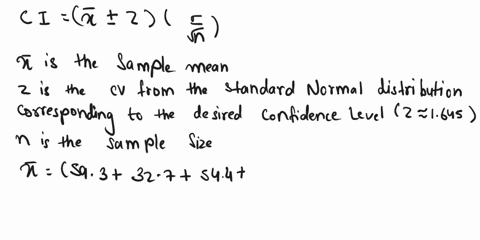 CI = (x̄ ± z) (σ/√n)
x̄ is the sample mean
z is the cv from the standard Normal distribution
corresponding to the desired confidence level (z ≈ 1.645)
n is the sample size
x̄ = (59.3 + 32.7 + 54.4 +